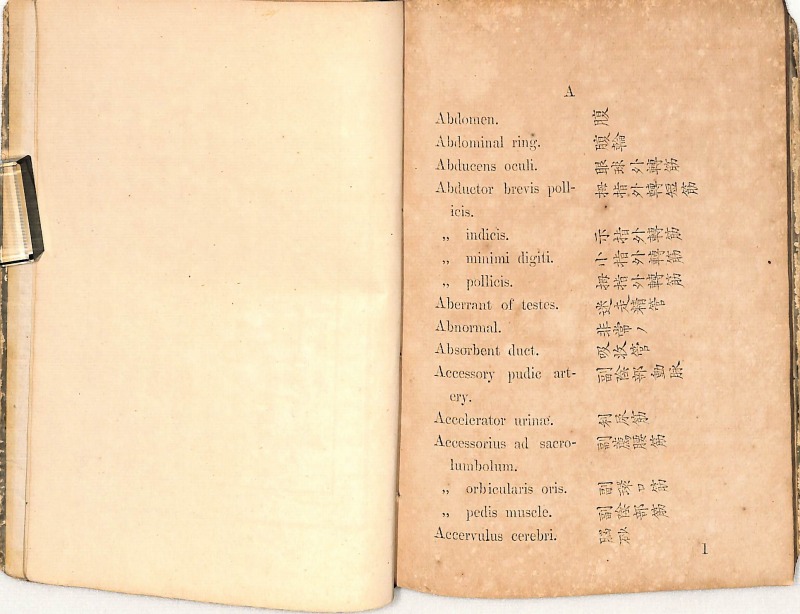 A
Abdomen. 腹
Abdominal ring. 腹輪
Abducens oculi. 眼球外轉筋
Abductor brevis poll- 拇指外轉短筋
icis.
„ indicis. 示指外轉筋
„ minimi digiti. 小指外轉筋
„ pollicis. 拇指外轉筋
Aberrant of testes. 迷走精管
Abnormal. 非常ノ
Absorbent duct. 吸收管
Accessory pudic art- 副陰部動脉
ery.
Accelerator urinæ. 利尿筋
Accessorius ad sacro- 副薦腰筋
lumbolum.
„ orbicularis oris. 副環口筋
„ pedis muscle. 副陰部筋
Accervulus cerebri. 腦砂
1